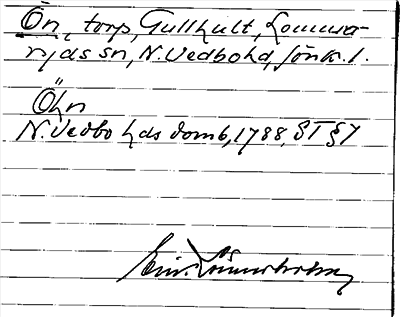 Ön, torp, Gullhult, Lomma-
ryds sn, N. Vedbo hd, Jönk. l.
Öhn
N. Vedbo hds domb, 1788, ST §7